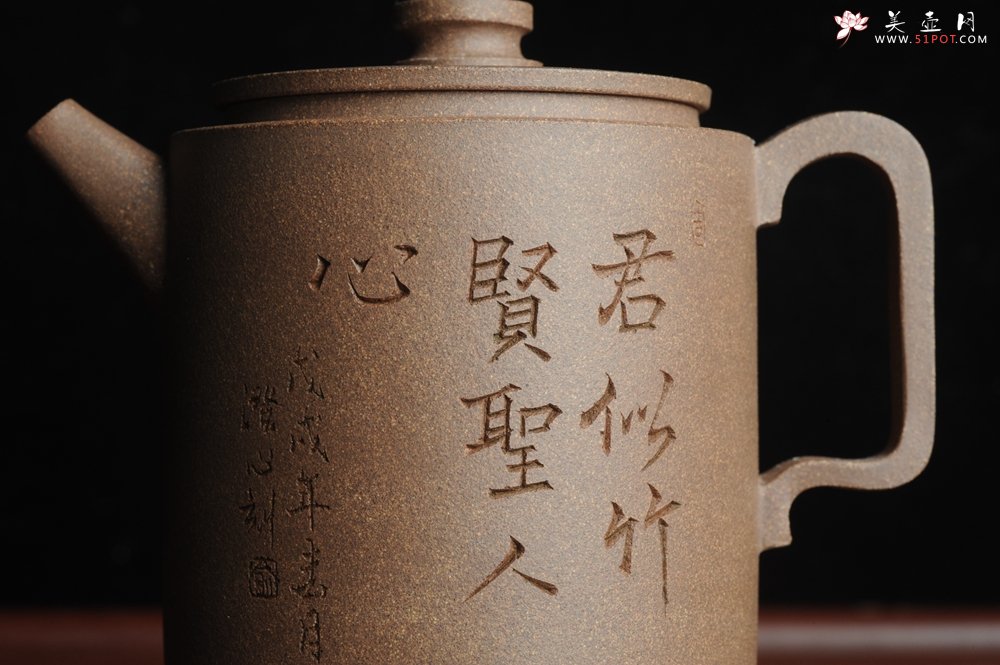 君似竹
賢聖人
心
戊戌年春月
澄心刻
美壶网
WWW.51POT.COM